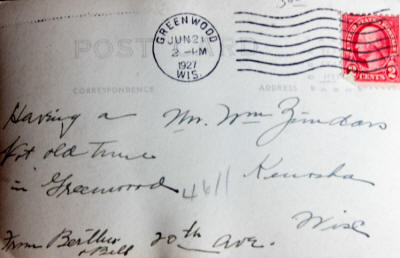 GREENWOOD
JUN 21
2 - PM
1927
WIS.
POST CARD
CORRESPONDENCE
ADDRESS
2 CENTS 2
Having a
Hot old time
in Greenwood
From Bertha
& Bill
Mr. Wm Zindars
4611
Kenosha
20th Ave.
Wisc